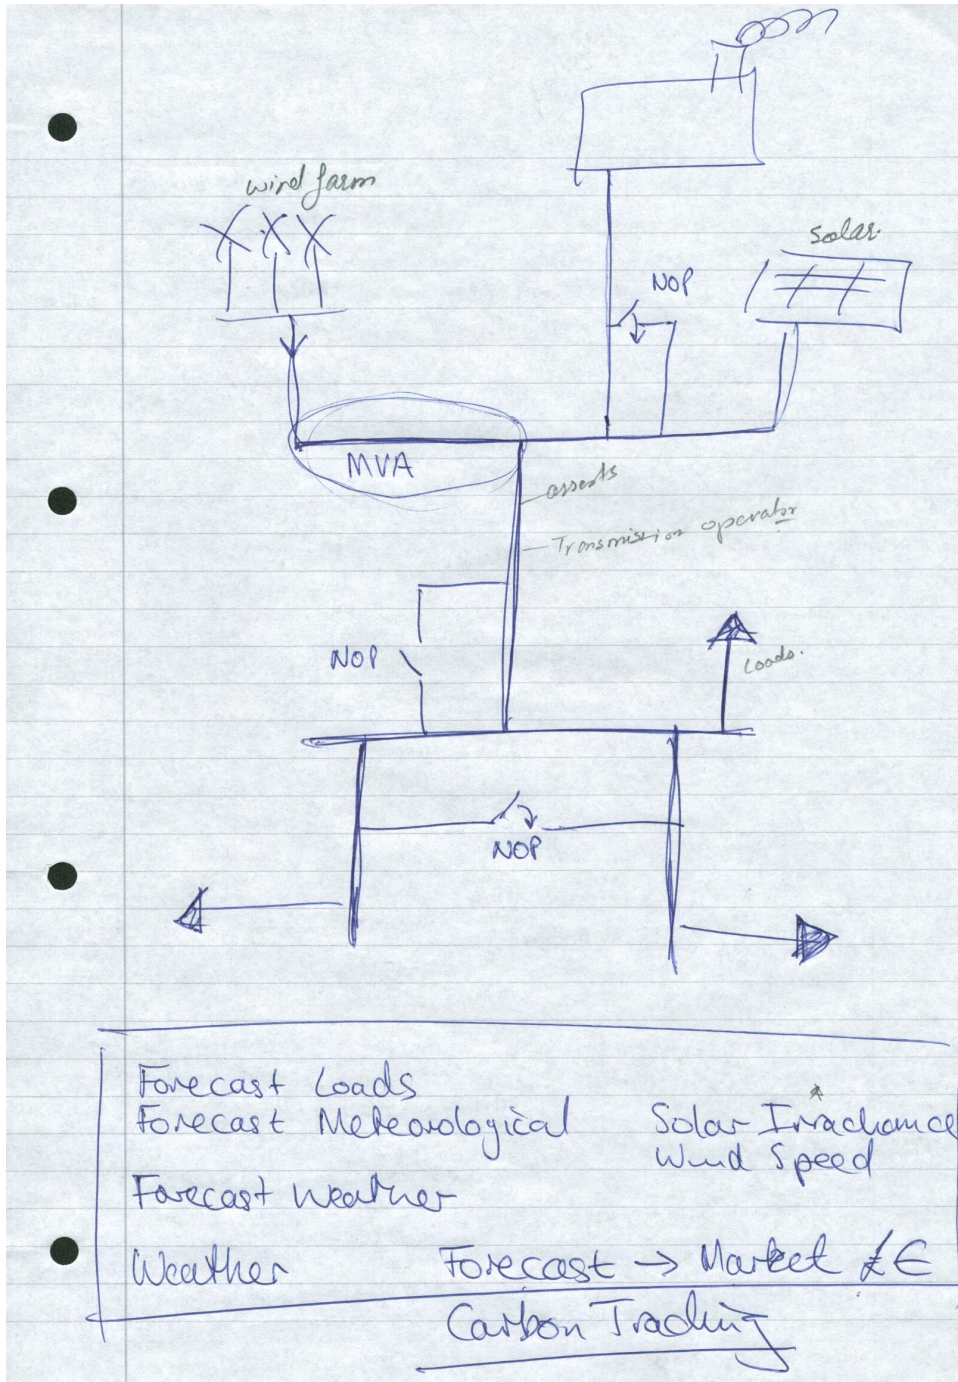 wind farm
solar.
NOP
MVA
assests
Transmission operator
NOP
Loads.
NOP
Forecast Loads
Forecast Meteorological Solar Irradiance
Wind Speed
Forecast Weather
Weather Forecast → Market £€
Carbon Trading